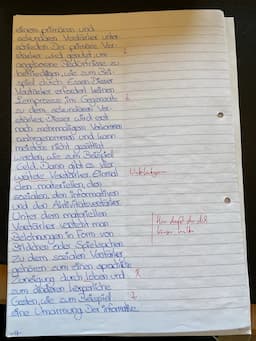 einem primären und
sekundären Verstärker unter
schieden. Der primäre Ver-
stärker wird genutzt um
angeborene Bedürfnisse zu
befriedigen, wie zum Bei-
spiel durch Essen. Dieser
Verstärker erfordert keinen
Lernprozess im Gegensatz
zu dem sekundären Ver-
stärker. Dieser wird erst
nach mehrmaligem Vorkommen
wahrgenommen und kann
meistens nicht gesättigt
werden, wie zum Beispiel
Geld. Darin gibt es vier
weitere Verstärker. Einmal
den materiellen, den
sozialen, den informativen
und den Aktivitätsverstärker.
Unter dem materiellen
Verstärker versteht man
Belohnungen in Form von
Bildchen oder Spielsachen.
Zu dem sozialen Verstärker
gehören zum einen sprachliche
Zuneigung durch Loben und
zum anderen körperliche
Gesten, wie zum Beispiel
eine Umarmung. Der informative